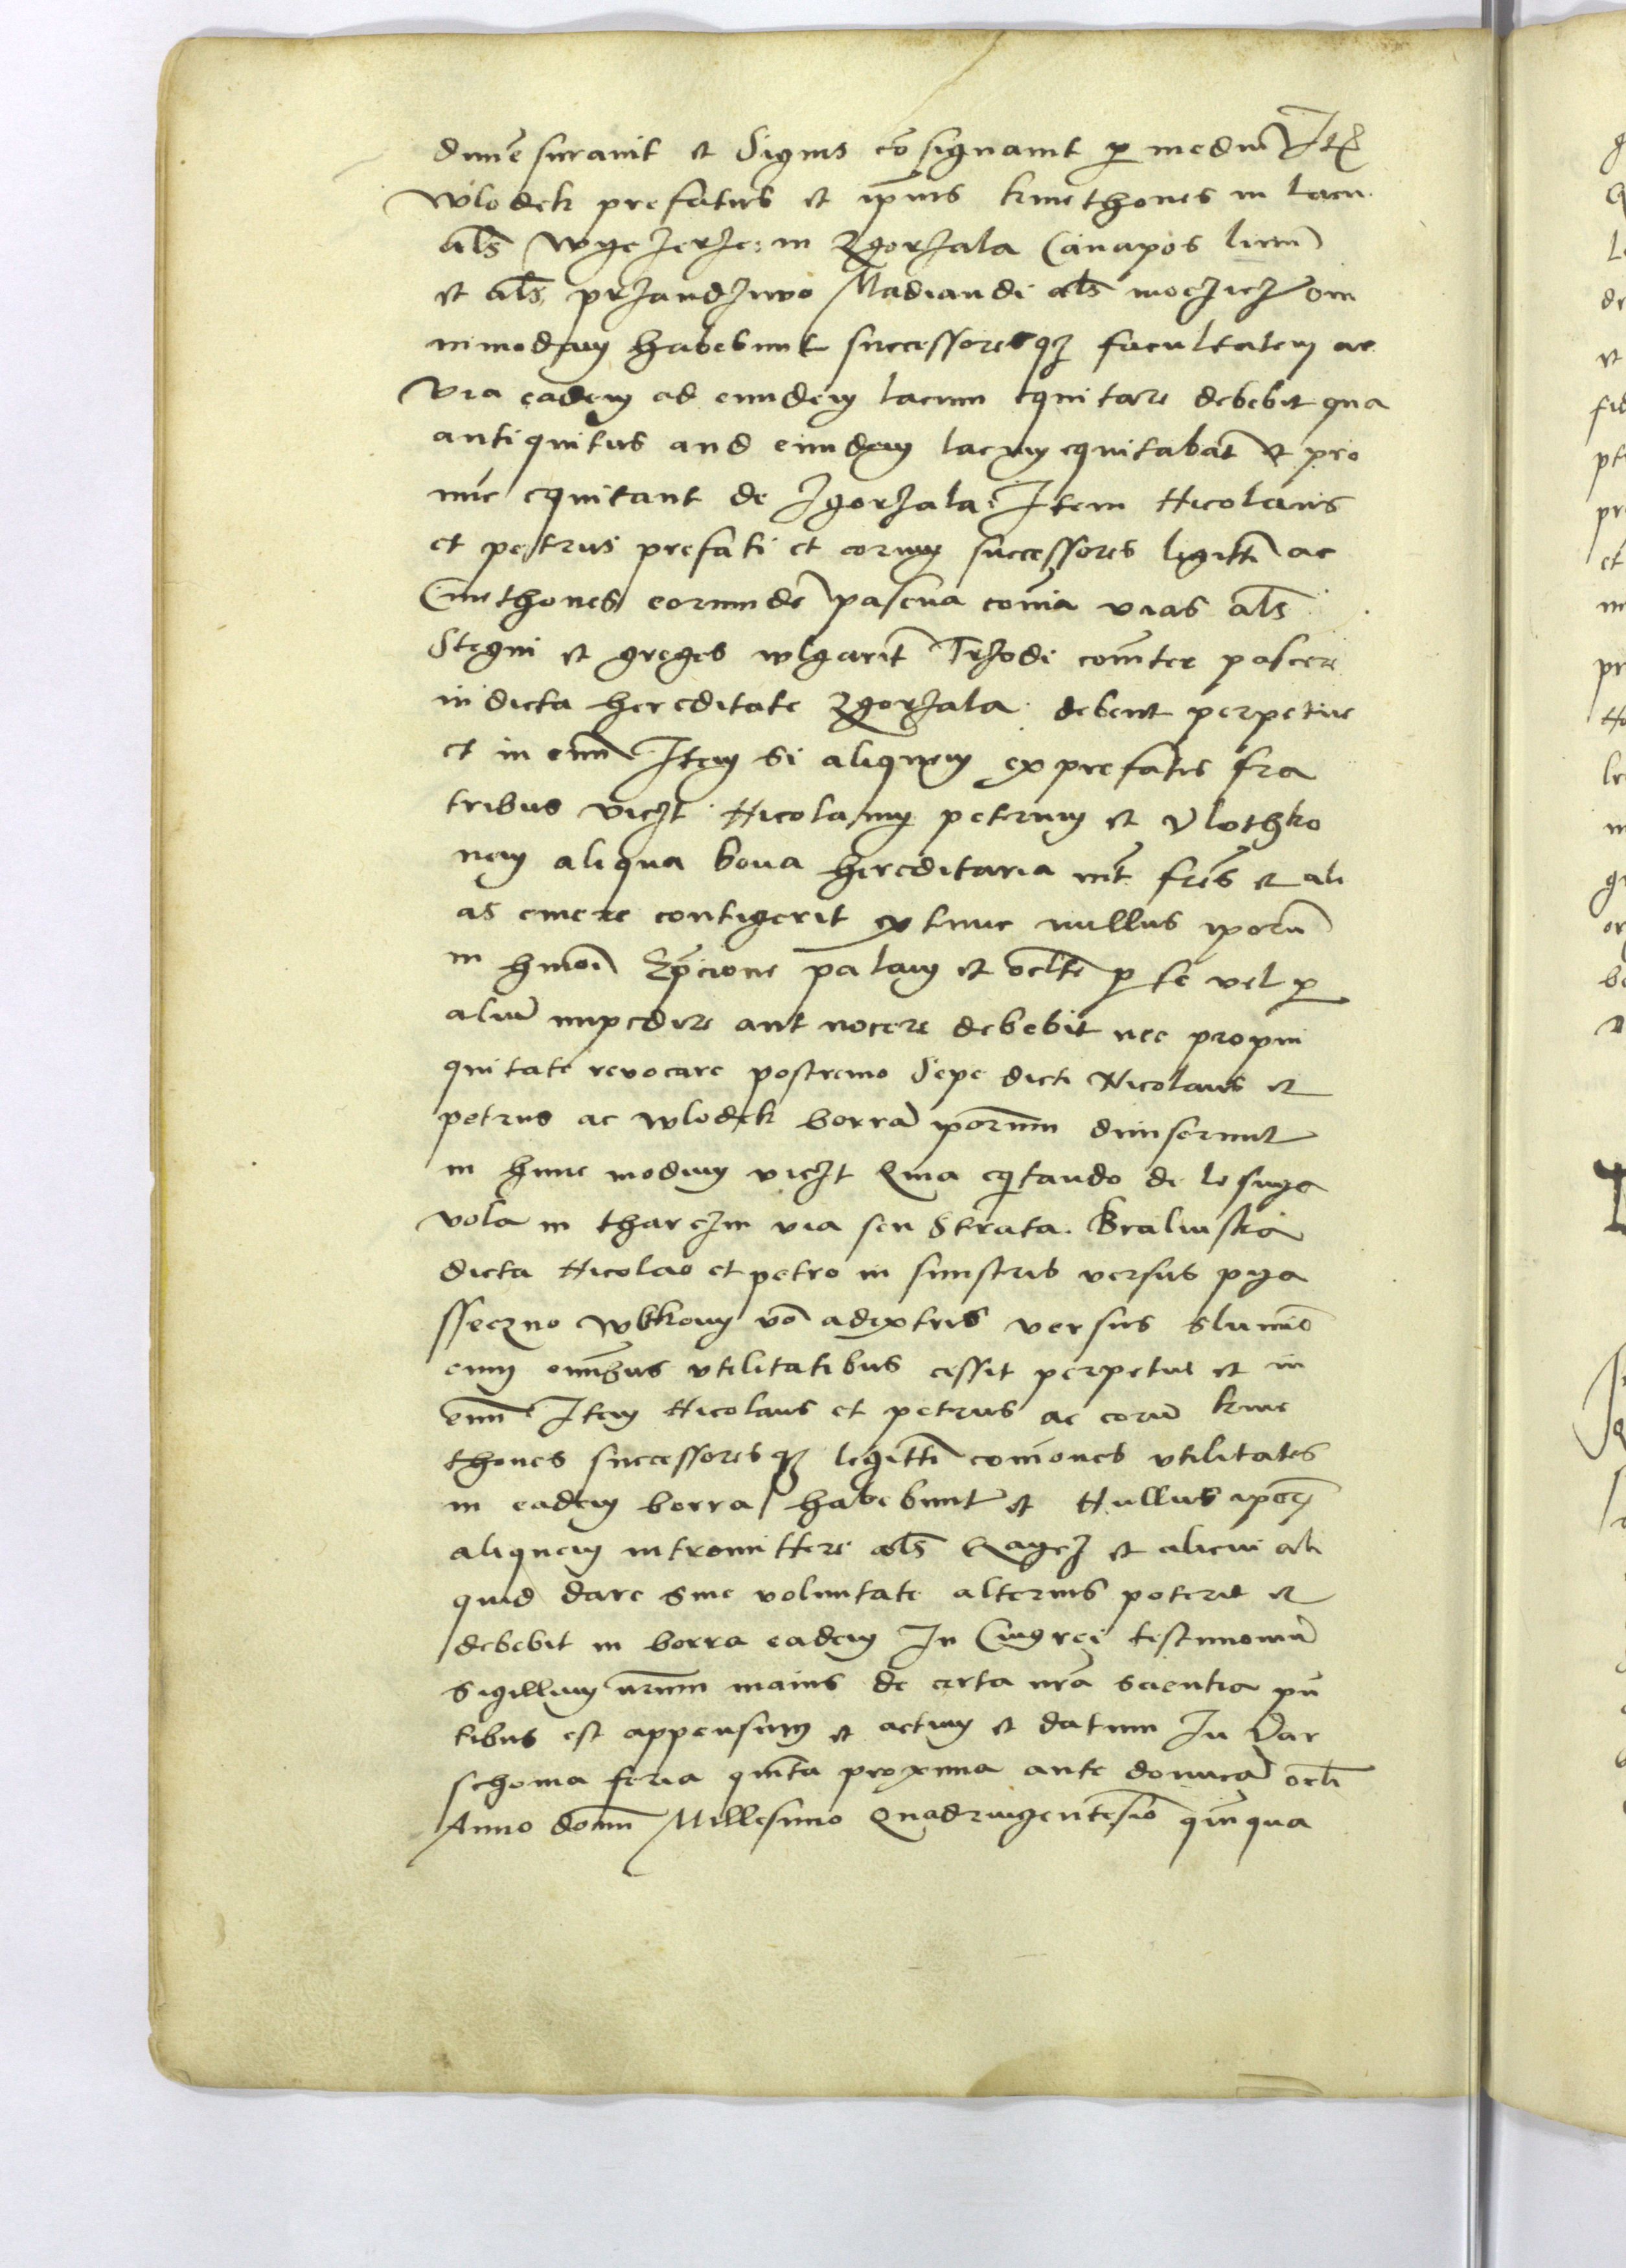 dimēsuravit et Signis cōsignavit p mediū Itē
Wlodek prefatus et ipius kmethones in lacu
als Wyezerze in Zgorzala Canapos linū
et als przandzivo Madiandi als moczicz om
nimodam habebunt successoresqz facultatem ac
via eadem ad eundem lacum equitare debebit qua
antiquitus and eundem lacum equitabāt et pro
nūc equitant de Zgorzala Item Nicolaus
et petrus prefati et eorum successores ligitti ac
Cmethones eorundē pascua coīa vias als
Stegni et greges wlgarit Trzodi coīter pascere
in dicta hereditate Zgorzala debent perpetue
et in evū Item Si aliquem ex prefatis fra
tribus viczt Nicolaum petrum et Vlothko
nem aliqua bona hereditaria int frēs et ali
as emere contigerit ex tunc nullus ipoꝝ
in hmōi Epcione palam et oclte p se vel p
aliū impedire aut nocere debebit nec propin
quitate revocare postremo Sepe dicti Nicolaus et
petrus ac Wlodek borrā ipoꝝ diviserunt
in hunc modum viczt Qma eqitando de lesnya
vola in tharczin via seu Strata Kraliuska
dicta Nicolao et petro in sinistris versus pya
sseczno vō adextris versus
cum omībus vtilitatibus cessit perpetue et in
evū Item Nicolaus et petrus ac eorū kme
thones successoresqz legitti comōnes vtilitates
in eadem borra habebunt et Nullus ipoꝝ
aliquem intromittere als et alicui ali
quid dare sine voluntate alterius poterit et
debebit in borra eadem In Cuig rei testimoniū
Sigillum nrum maius de certa nra scientia pn
tibus est appensum et actum et datum In Var
schovia feria quīta proxima ante domicā ocli
Anno domī Millesimo Quadringentesīo quīqua